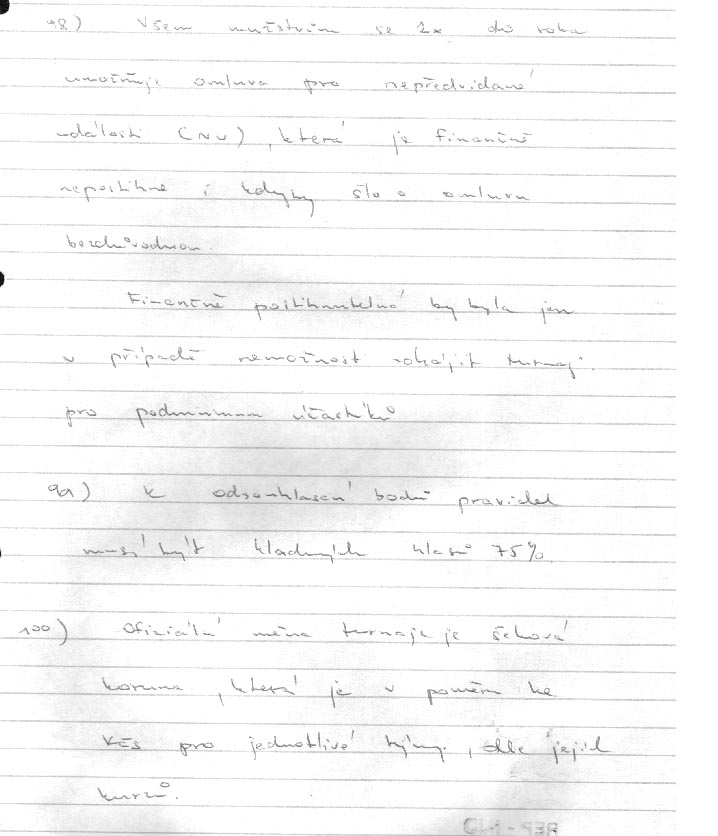 98) Všem mužstvům se 2x do roka
umožňuje omluva pro nepředvídané
události (NU), která je finančně
nepostihne i kdyby šlo o omluvu
bezdůvodnou.
Finančně postihnutelné by byla jen
v případě nemožnost zahájit turnaj.
pro podminimum účastníků
99) K odsouhlasení bodů pravidel
musí být kladných hlasů 75%.
100) Oficiální měna turnaje je šeková
koruna, která je v poměru ke
KČS pro jednotlivé týmy, dle jejich
kurzů.